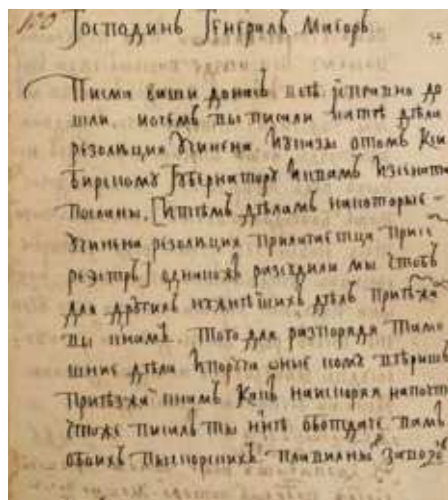 Господинъ Генералъ Маиоръ
Писма ваши донасъ всѣ исправно до
шли, почемъ вы писали натѣ дѣла
резолюция учинена, иуказы отомъ Кси
бирскому Губернатору ивамъ изсената
посланы, [итѣмъ дѣламъ накоторые
учинена резолюция прилагаетца присемъ
реэстръ] однакожъ разсудили мы чтобъ
для другихъ нужнѣишихъ дѣлъ приѣзжа
вы кнамъ. Того для распоряди тамо
шние дѣла ипоруча оные кому вѣриш
приѣзжа кнамъ какъ наискоряя напочте
чтоже писалъ ты оботдаче вамъ
обоихъ выборскихъ